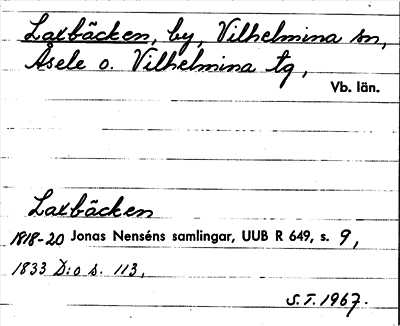 Laxbäcken, by, Vilhelmina sn,
Åsele o. Vilhelmina tg,
Vb. län.
Laxbäcken
1818-20 Jonas Nenséns samlingar, UUB R 649, s. 9,
1833 D:o s. 113,
S.T. 1967.